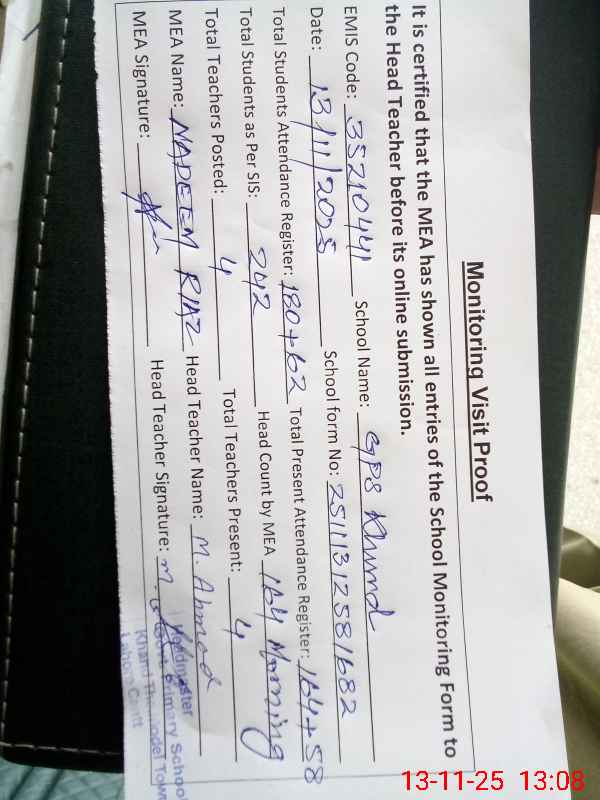 Monitoring Visit Proof
It is certified that the MEA has shown all entries of the School Monitoring Form to
the Head Teacher before its online submission.
EMIS Code: 35210441 School Name: GPS Khund
Date: 13/11/2025 School form No: 251113125816 82
Total Students Attendance Register: 180+62 Total Present Attendance Register: 164+58
Total Students as Per SIS: 242 Head Count by MEA 164 Morning
Total Teachers Posted: 4 Total Teachers Present: 4
MEA Name: NADEEM RIAZ Head Teacher Name: M. Ahmad
MEA Signature: Head Teacher Signature: M.
Headmaster
Primary School
Khand The Model Town
Lahore Cantt
13-11-25 13:08